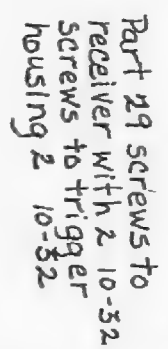 Part 29 screws to
receiver with 2 10-32
screws to trigger
housing 2 10-32